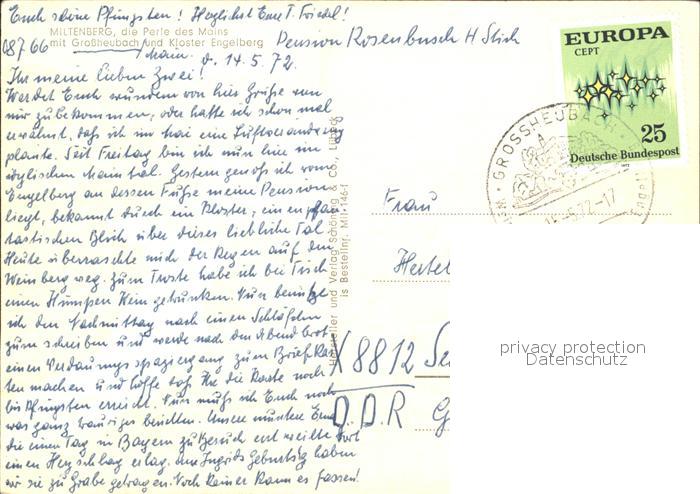 Euch schöne Pfingsten! Herzlichst Eure T. Friedel!
MILTENBERG, die Perle des Mains
8766 mit Großheubach und Kloster Engelberg
Main. d. 14.5.72.
Pension Rosenbusch H Stich
Ihr meine lieben Zwei!
Werdet Euch wundern von hier Grüße von
mir zu bekommen, oder hatte ich schon mal
erwähnt, daß ich im Mai eine Luftveränderung
plante. Seit Freitag bin ich nun hier im
idyllischen Maintal. Gestern genoß ich vom
Engelberg an dessen Fuße meine Pension
liegt, bekannt durch ein Kloster, ein en phan
tastischen Blick über dieses liebliche Tal
Heute überraschte mich der Regen auf dem
Weinberg weg. Zum Troste habe ich bei Tisch
einen Humpen Wein getrunken. Nun benutze
ich den Nachmittag nach einen Schläfchen
zum schreiben und werde nach dem Abendbrot
einen Verdauungsspaziergang zum Briefkas
ten machen und hoffe daß Ihr die Karte noch
bis Pfingsten erreicht. Nun muß ich Euch noch
was ganz trauriges berichten. Unsere muntere
die einen Tag in Bayern zu Besuch erst weilte dort
einen Herzschlag erlag. Am Ingrids Geburtstag haben
wir sie zu Grabe getragen. Noch keiner kann es fassen!
Hersteller und Verlag Schöning & Co., Lübeck
is Bestellnr. Milt 146-1
EUROPA
CEPT
25
Deutsche Bundespost
GROSSHEUBACH
15.-5.72-17
Engelb
Frau
Hertel
X 8812 Se
DDR G
privacy protection
Datenschutz